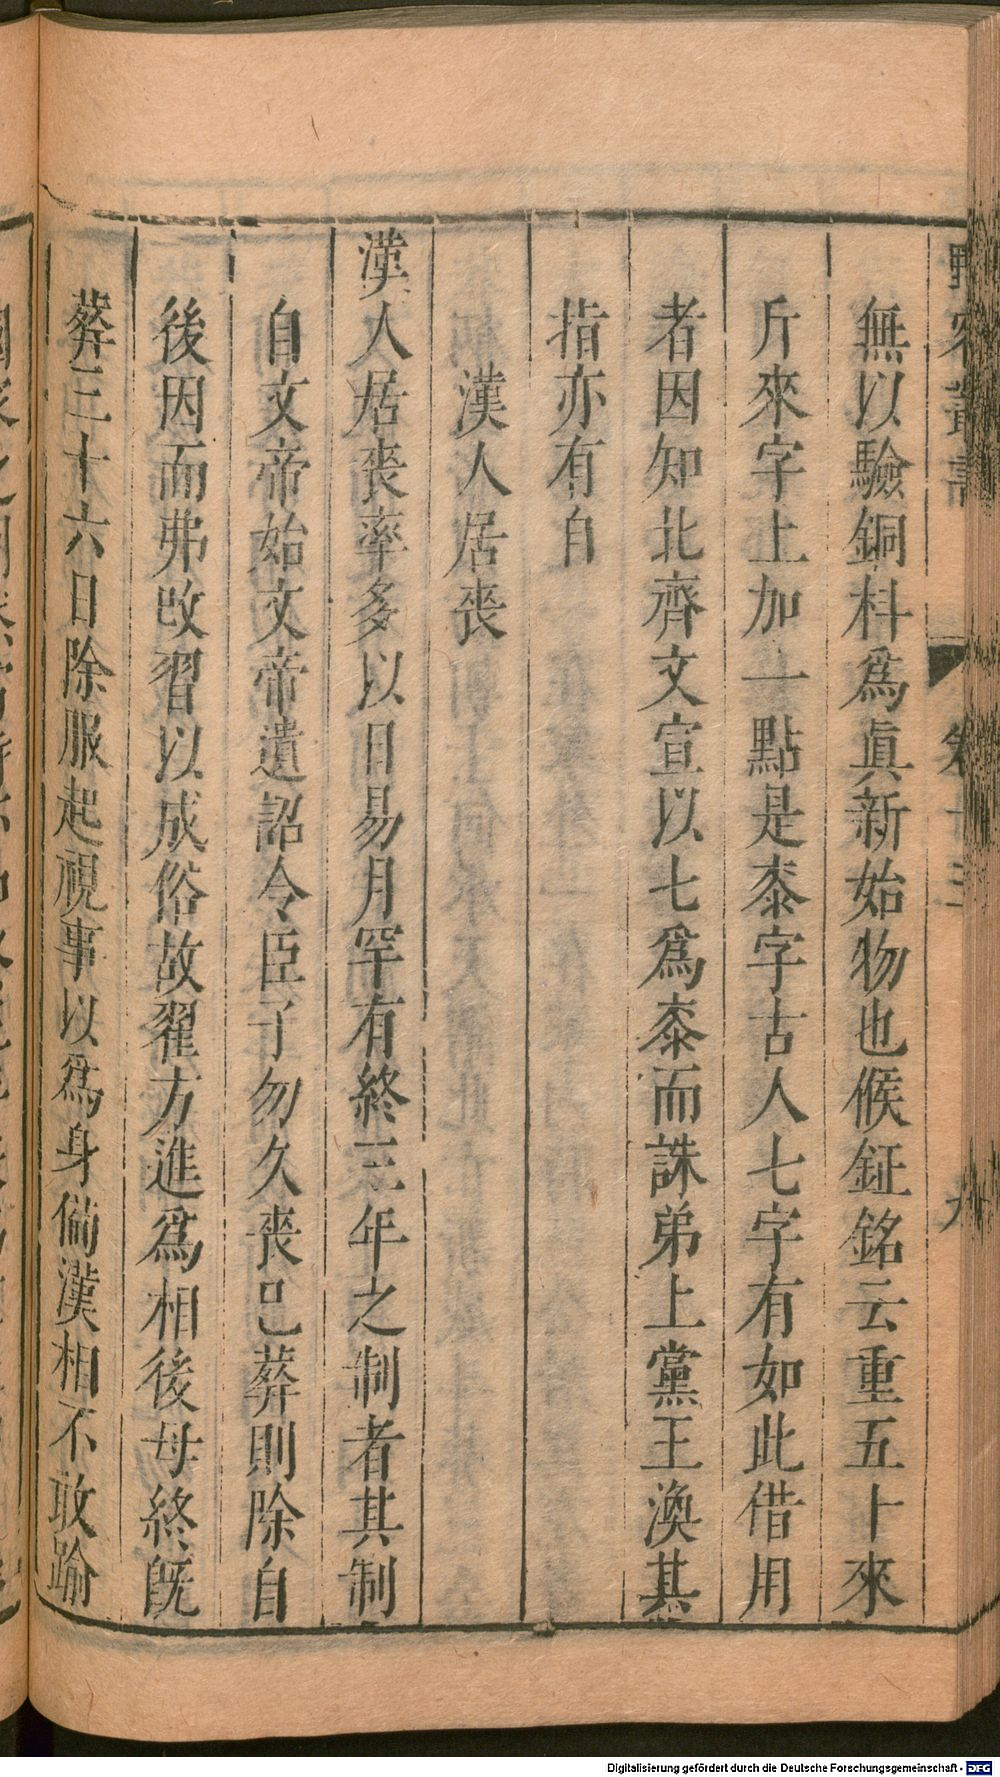 野客叢書 卷十三 九
無以驗銅枓爲眞新始物也候鉦銘云重五十來
斤來字上加一點是桼字古人七字有如此借用
者因知北齊文宣以七爲桼而誅弟上黨王渙其
指亦有自
漢人居丧
漢人居丧率多以日易月罕有終三年之制者其制
自文帝始文帝遺詔令臣子勿久丧已葬則除自
後因而弗改習以成俗故翟方進爲相後母終旣
葬三十六日除服起視事以爲身備漢相不敢踰
Digitalisierung gefördert durch die Deutsche Forschungsgemeinschaft - DFG